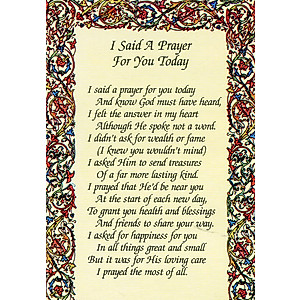 I Said A Prayer
For You Today
I said a prayer for you today
And know God must have heard,
I felt the answer in my heart
Although He spoke not a word.
I didn't ask for wealth or fame
(I knew you wouldn't mind)
I asked Him to send treasures
Of a far more lasting kind.
I prayed that He'd be near you
At the start of each new day,
To grant you health and blessings
And friends to share your way.
I asked for happiness for you
In all things great and small
But it was for His loving care
I prayed the most of all.